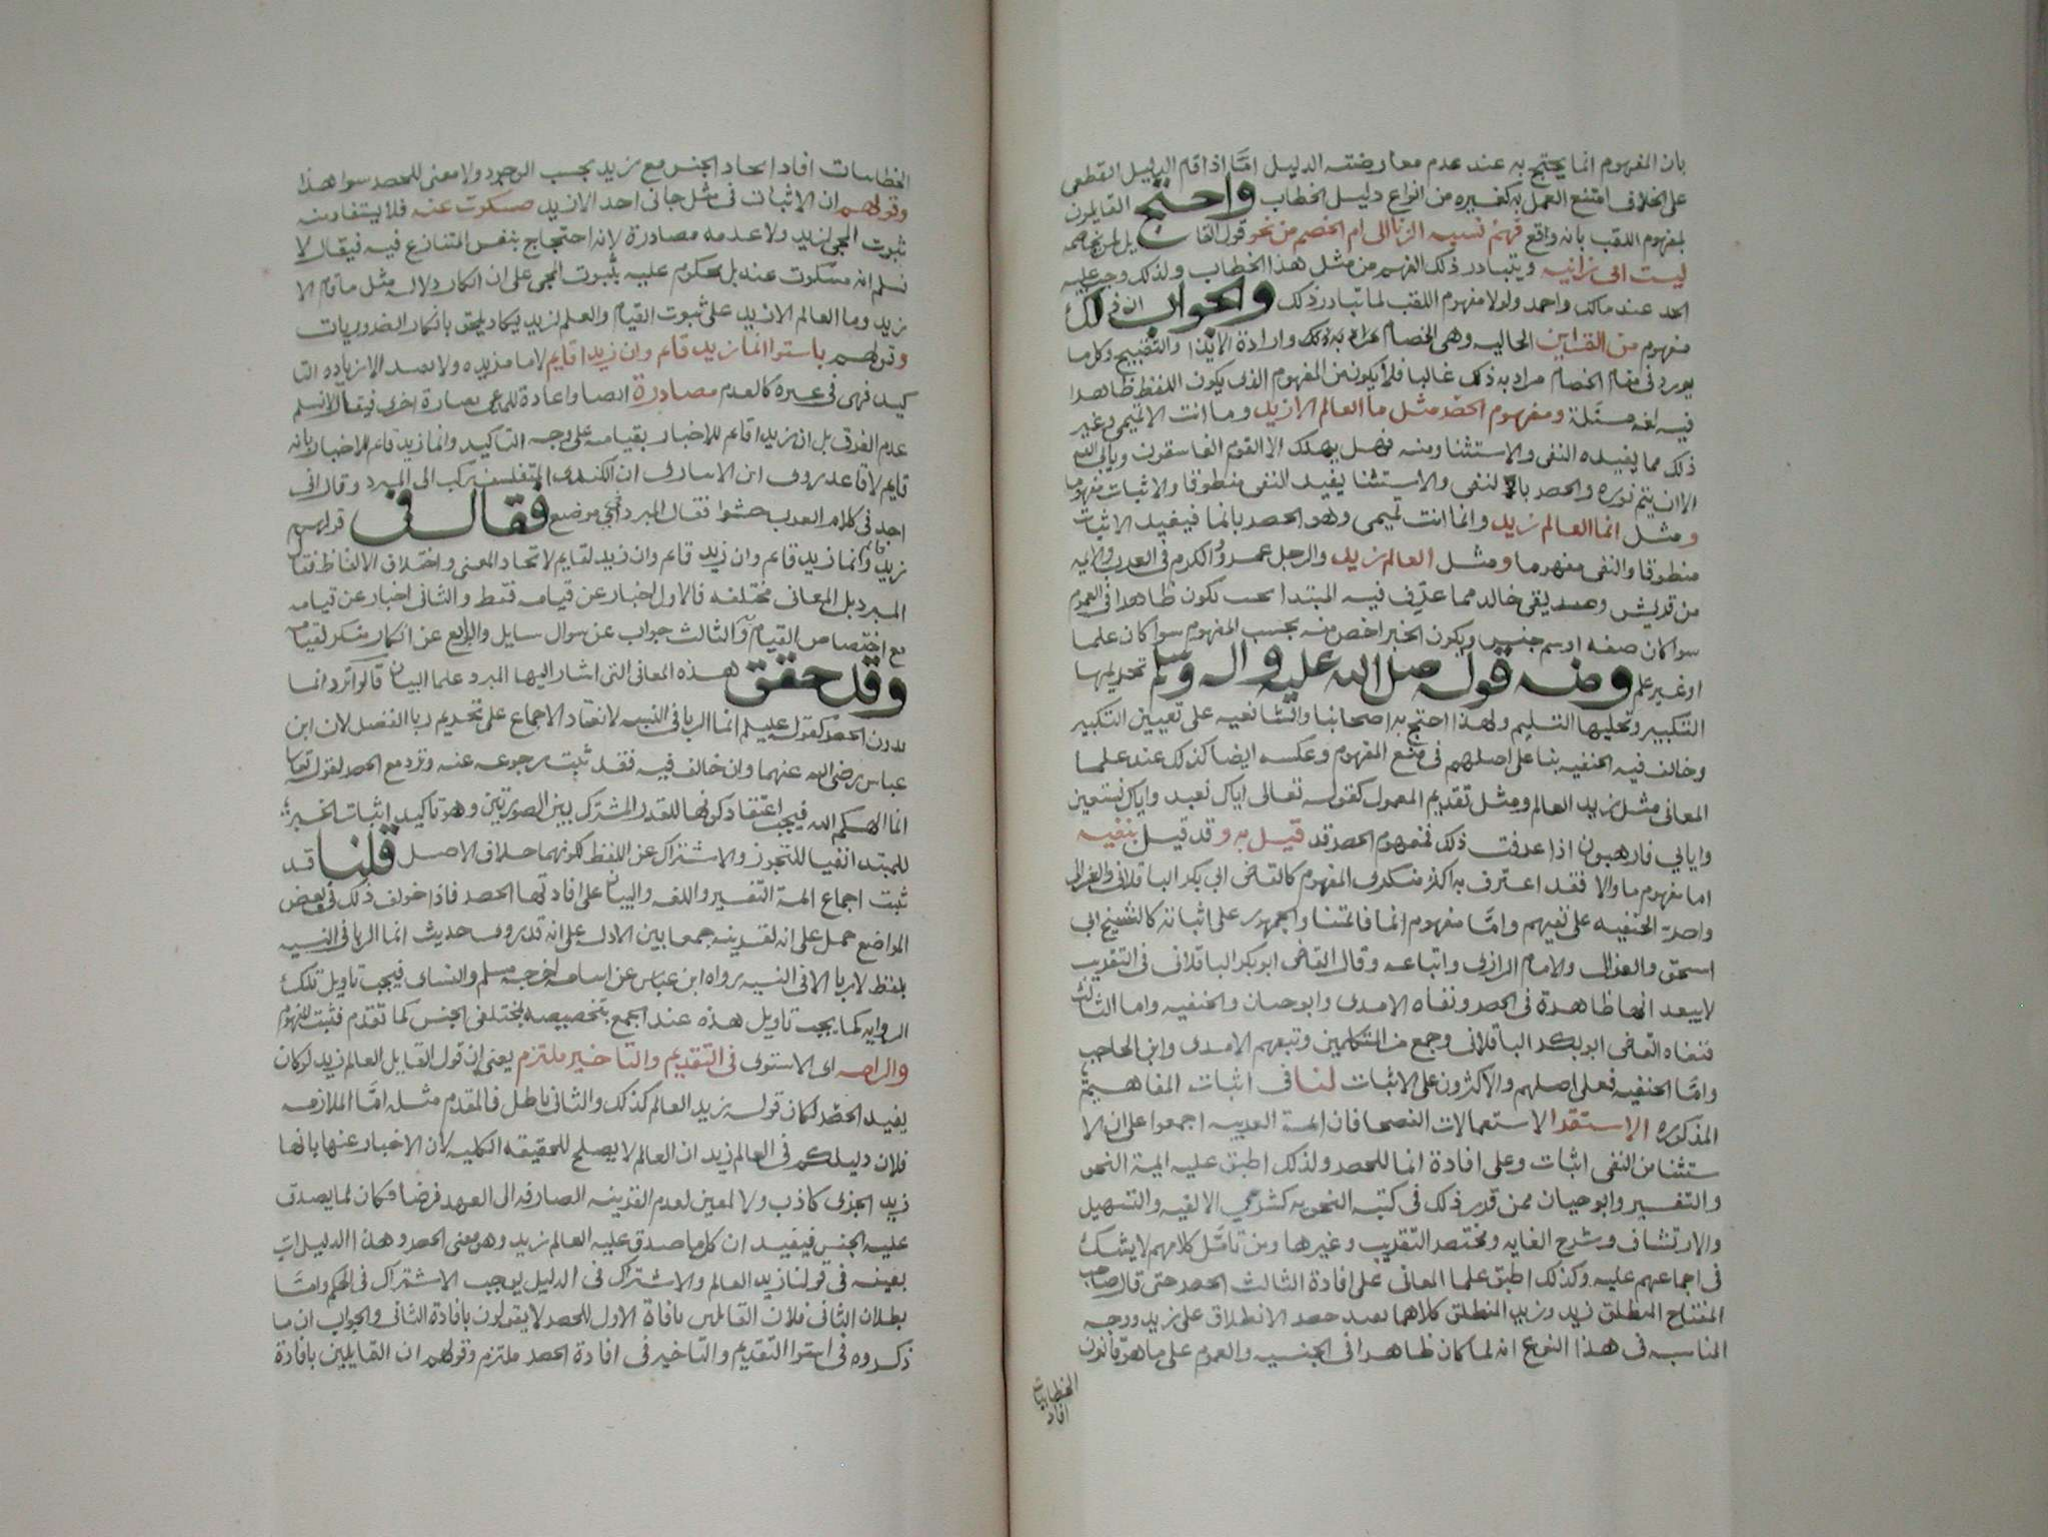 بان المفهوم انما يحتج به عند عدم معارضته الدليل امّا اذا قام الدليل القطعى
على الخلاف امتنع العمل به كغيره من انواع دليل الخطاب واحتج القايلون
بمفهوم اللقب بانه واقع فهم نسبه الزنا الى ام الخصم من نحو قول القايل لمن يخاصمه
ليست امى زانيه ويتبادر ذلك الفهم من مثل هذا الخطاب ولذلك وجب عليه
الحد عند مالك واحمد ولولا مفهوم اللقب لما تبادر ذلك والجواب ان ذلك
مفهوم من القراين الحاليه وهى الخصام مراد به ذلك وارادة الايذا والتقبيح وكل ما
يورد فى مقام الخصام مراد به ذلك غالبا فلا يكون من المفهوم الذى يكون اللفظ ظاهرا
فيه لغه مسَلة ومفهوم الحصْر مثل ما العالم الا زيد وما انت الا تميمى وغير
ذلك مما يفيده النفى والاستثنا ومنه فهل يهلك الا القوم الفاسقون ويابى الله
الا ان يتم نوره والحصر بالنفى والاستثنا يفيد النفى منطوقا والاثبات مفهوما
ومثل انما العالم زيد وانما انت تميمى وهو الحصر بانما فيفيد الاثبات
منطوقا والنفى مفهوما ومثل العالم زيد والرجل عمرو والكرم فى العرب والايمه
من قريش وصديقى خالد مما عرّف فيه المبتدا بحيث يكون ظاهرا فى العموم
سوا كان صفه او اسم جنس ويكون الخبر اخص منه بحسب المفهوم سوا كان علما
او غير علم ومنه قوله صلى الله عليه واله وسلم تحريمها
التكبير وتحليلها التسليم ولهذا احتج به اصحابنا والشافعيه على تعيين التكبير
وخالف فيه الحنفيه بنا على اصلهم فى منع المفهوم وعكسه ايضا كذلك عند علما
المعانى مثل زيد العالم ومثل تقديم المعمول كقوله تعالى اياك نعبد واياك نستعين
واياي فارهبون اذا عرفت ذلك فمفهوم الحصر قد قيل به وقد قيل بنفيه
اما مفهوم ما والا فقد اعترف به اكثر منكرى المفهوم كالقاضى ابى بكر الباقلانى والغزالى
واصرّ الحنفيه على نفيهم وامّا مفهوم انما فائمتنا والجمهور على اثباته كالشيخ ابي
اسحق والغزالى والامام الرازى واتباعه وقال القاضى ابو بكر الباقلانى فى التقريب
لا يبعد انها ظاهرة فى الحصر ونفاه الامدى وابو حيان والحنفيه واما الثالث
فنفاه القاضى ابو بكر الباقلانى وجمع من المتكلمين وتبعهم الامدى وابن الحاجب
وامّا الحنفيه فعلى اصلهم والاكثرون على الاثبات لنا فى اثبات المفاهيم
المذكوره الاستقرا لاستعمالات الفصحا فان ايمة العربيه اجمعوا على ان الا
ستثنا من النفى اثبات وعلى افادة انما للحصر ولذلك اطبق عليه ايمة النحو
والتفسير وابو حيان ممن قرر ذلك فى كتبه النحويه كشرحي الالفيه والتسهيل
والارتشاف وشرح الغايه ومختصر التقريب وغيرها ومن تامّل كلامهم لا يشك
فى اجماعهم عليه وكذلك اطبق علما المعانى على افادة الثالث الحصر حتى قال صاحب
المفتاح المنطلق زيد وزيد المنطلق كلاهما يفيد حصر الانطلاق على زيد ووجه
المناسبه فى هذا النوع انه لما كان ظاهرا فى الجنسيه والعموم على ما هو قانون
الخطابيات
افاد
الخطابيات افاد اتحاد الجنس مع زيد بحسب الوجود ولا معنى للحصر سوا هذا
وقولهم ان الاثبات فى مثل جانى احد الا زيد مسكوت عنه فلا يستفاد منه
ثبوت المجى لزيد ولا عدمه مصادرة لانه احتجاج بنفس المتنازع فيه فيقال لا
نسلم انه مسكوت عنه بل محكوم عليه بثبوت المجى على ان انكار دلالة مثل ما قام الا
زيد وما العالم الا زيد على ثبوت القيام والعلم لزيد يكاد يلحق بانكار الضروريات
وقولهم باستوا انما زيد قام وان زيدا قايم لا ما مزيده ولا يفيد الا زياده التا
كيد فهى فى غيره كالعدم مصادرة ايضا واعادة للمدعى بعبارة اخرى فيقال لا نسلم
عدم الفرق بل ان زيدا قايم للاخبار بقيامه على وجه التاكيد وانما زيد قايم للاخبار بانه
قايم لا قاعد روى ابن الانبارى ان الكندى المتفلسف ركب الى المبرد وقال انى
اجد فى كلام العرب حشوا فقال المبرد فى اي موضع فقال فى قولهم
زيد قايم وانما زيد قايم وان زيد قايم وان زيد لقايم لاتحاد المعنى واختلاف الالفاظ فقال
المبرد بل المعانى مختلفه فالاول اخبار عن قيامه فقط والثانى اخبار عن قيامه
مع اختصاص القيام به والثالث جواب عن سوال سايل والرابع عن انكار منكر لقيامه
وقد حقق هذه المعانى التى اشار اليها المبرد علما البيان قالوا ترد انما
بدون الحصر كقوله عليلم انما الربا فى النسيه لانعقاد الاجماع على تحريم ربا الفضل لان ابن
عباس رضى الله عنهما وان خالف فيه فقد ثبت رجوعه عنه وترد مع الحصر لقوله تعالى
انما الهكم الله فيجب اعتقاد كونها للقدر المشترك بين الصورتين وهو تاكيد اثبات الخبر
للمبتدا نفيا للتجوز والاشتراك عن اللفظ لكونهما خلاف الاصل قلنا قد
ثبت اجماع ايمة التفسير واللغه والبيان على افادتها الحصر فاذا خولف ذلك فى بعض
المواضع حمل على انه لقرينه جمعا بين الادله على انه قد روى حديث انما الربا فى النسيه
بلفظ لا ربا الا فى النسيه رواه ابن عباس عن اسامه اخرجه مسلم والنساى فيجب تاويل تلك
الروايه كما يجب تاويل هذه عند الجمع بتخصيصه بمختلفى الجنس كما تقدم فثبت المفهوم
والزامه اى الاستوى فى التقديم والتاخير ملتزم يعنى ان قول القايل العالم زيد لو كان
يفيد الحصْر لكان قوله زيد العالم كذلك والثانى باطل فالمقدم مثله امّا الملازمه
فلان دليلكم فى العالم زيد ان العالم لا يصلح للحقيقه الكليه لان الاخبار عنها بانها
زيد الجزى كاذب ولا لمعين لعدم القرينه الصارفه الى العهد فرضا فكان لما يصدق
عليه الجنس فيفيد ان كل ما صدق عليه العالم زيد وهو معنى الحصر وهذا الدليل آت
بعينه فى قولنا زيد العالم والاشتراك فى الدليل يوجب الاشتراك فى الحكم وامّا
بطلان الثانى فلان القايلين بافادة الاول للحصر لا يقولون بافادة الثانى والجواب ان ما
ذكروه فى استوا التقديم والتاخير فى افادة الحصر ملتزم وقولهم ان القايلين بافادة